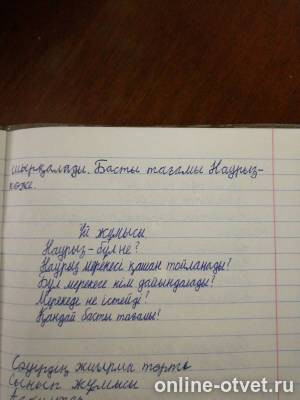 шырқалады. Басты тағамы Наурыз-
көже.
Үй жұмысы
Наурыз - бұл не?
Наурыз мерекесі қашан тойланады?
Бұл мерекеге кім дайындалады?
Мерекеде не істейді?
Қандай басты тағамы?
Сәуірдің жиырма төрті
Сынып жұмысы
online-otvet.ru